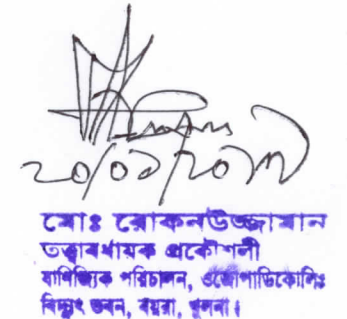 ২০/০৯/২০১৭
মোঃ রোকনউজ্জামান
তত্ত্বাবধায়ক প্রকৌশলী
বাণিজ্যিক পরিচালন, ওজোপাডিকোলিঃ
বিদ্যুৎ ভবন, বয়রা, খুলনা।